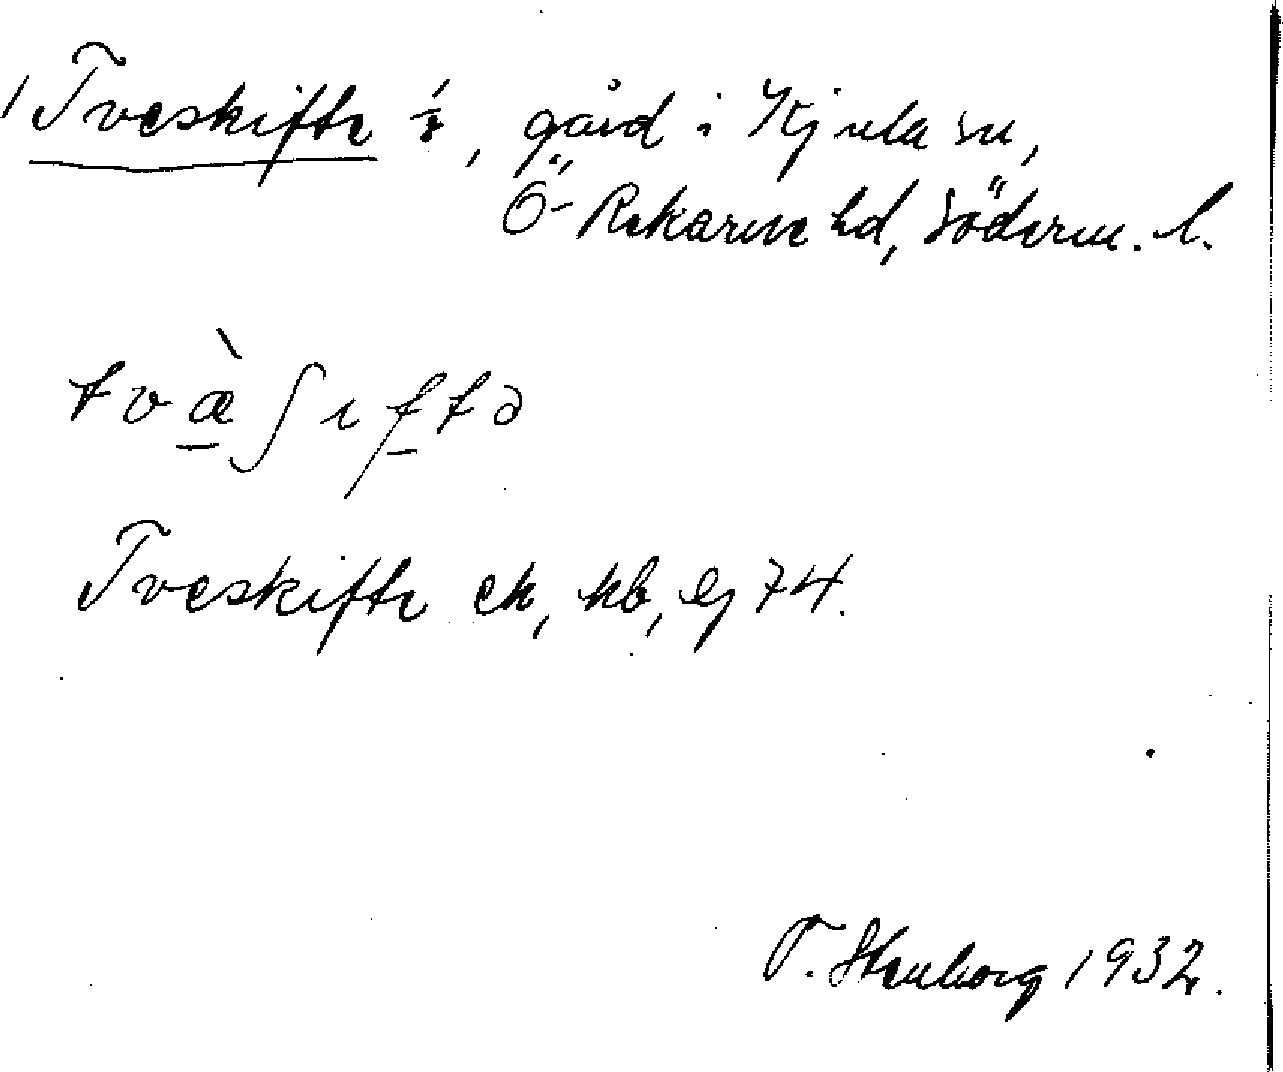 1 Tveskifte ⅟₈, gård i Kjula sn,
Ö- Rekarne hd, Söderm. l.
tvæ̀ʃıftə
Tveskifte ek, kb, ej 74.
T. Stenborg 1932.